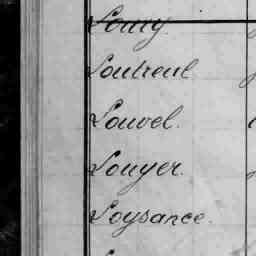 Loutreul
Louvel.
Louyer.
Loysance.